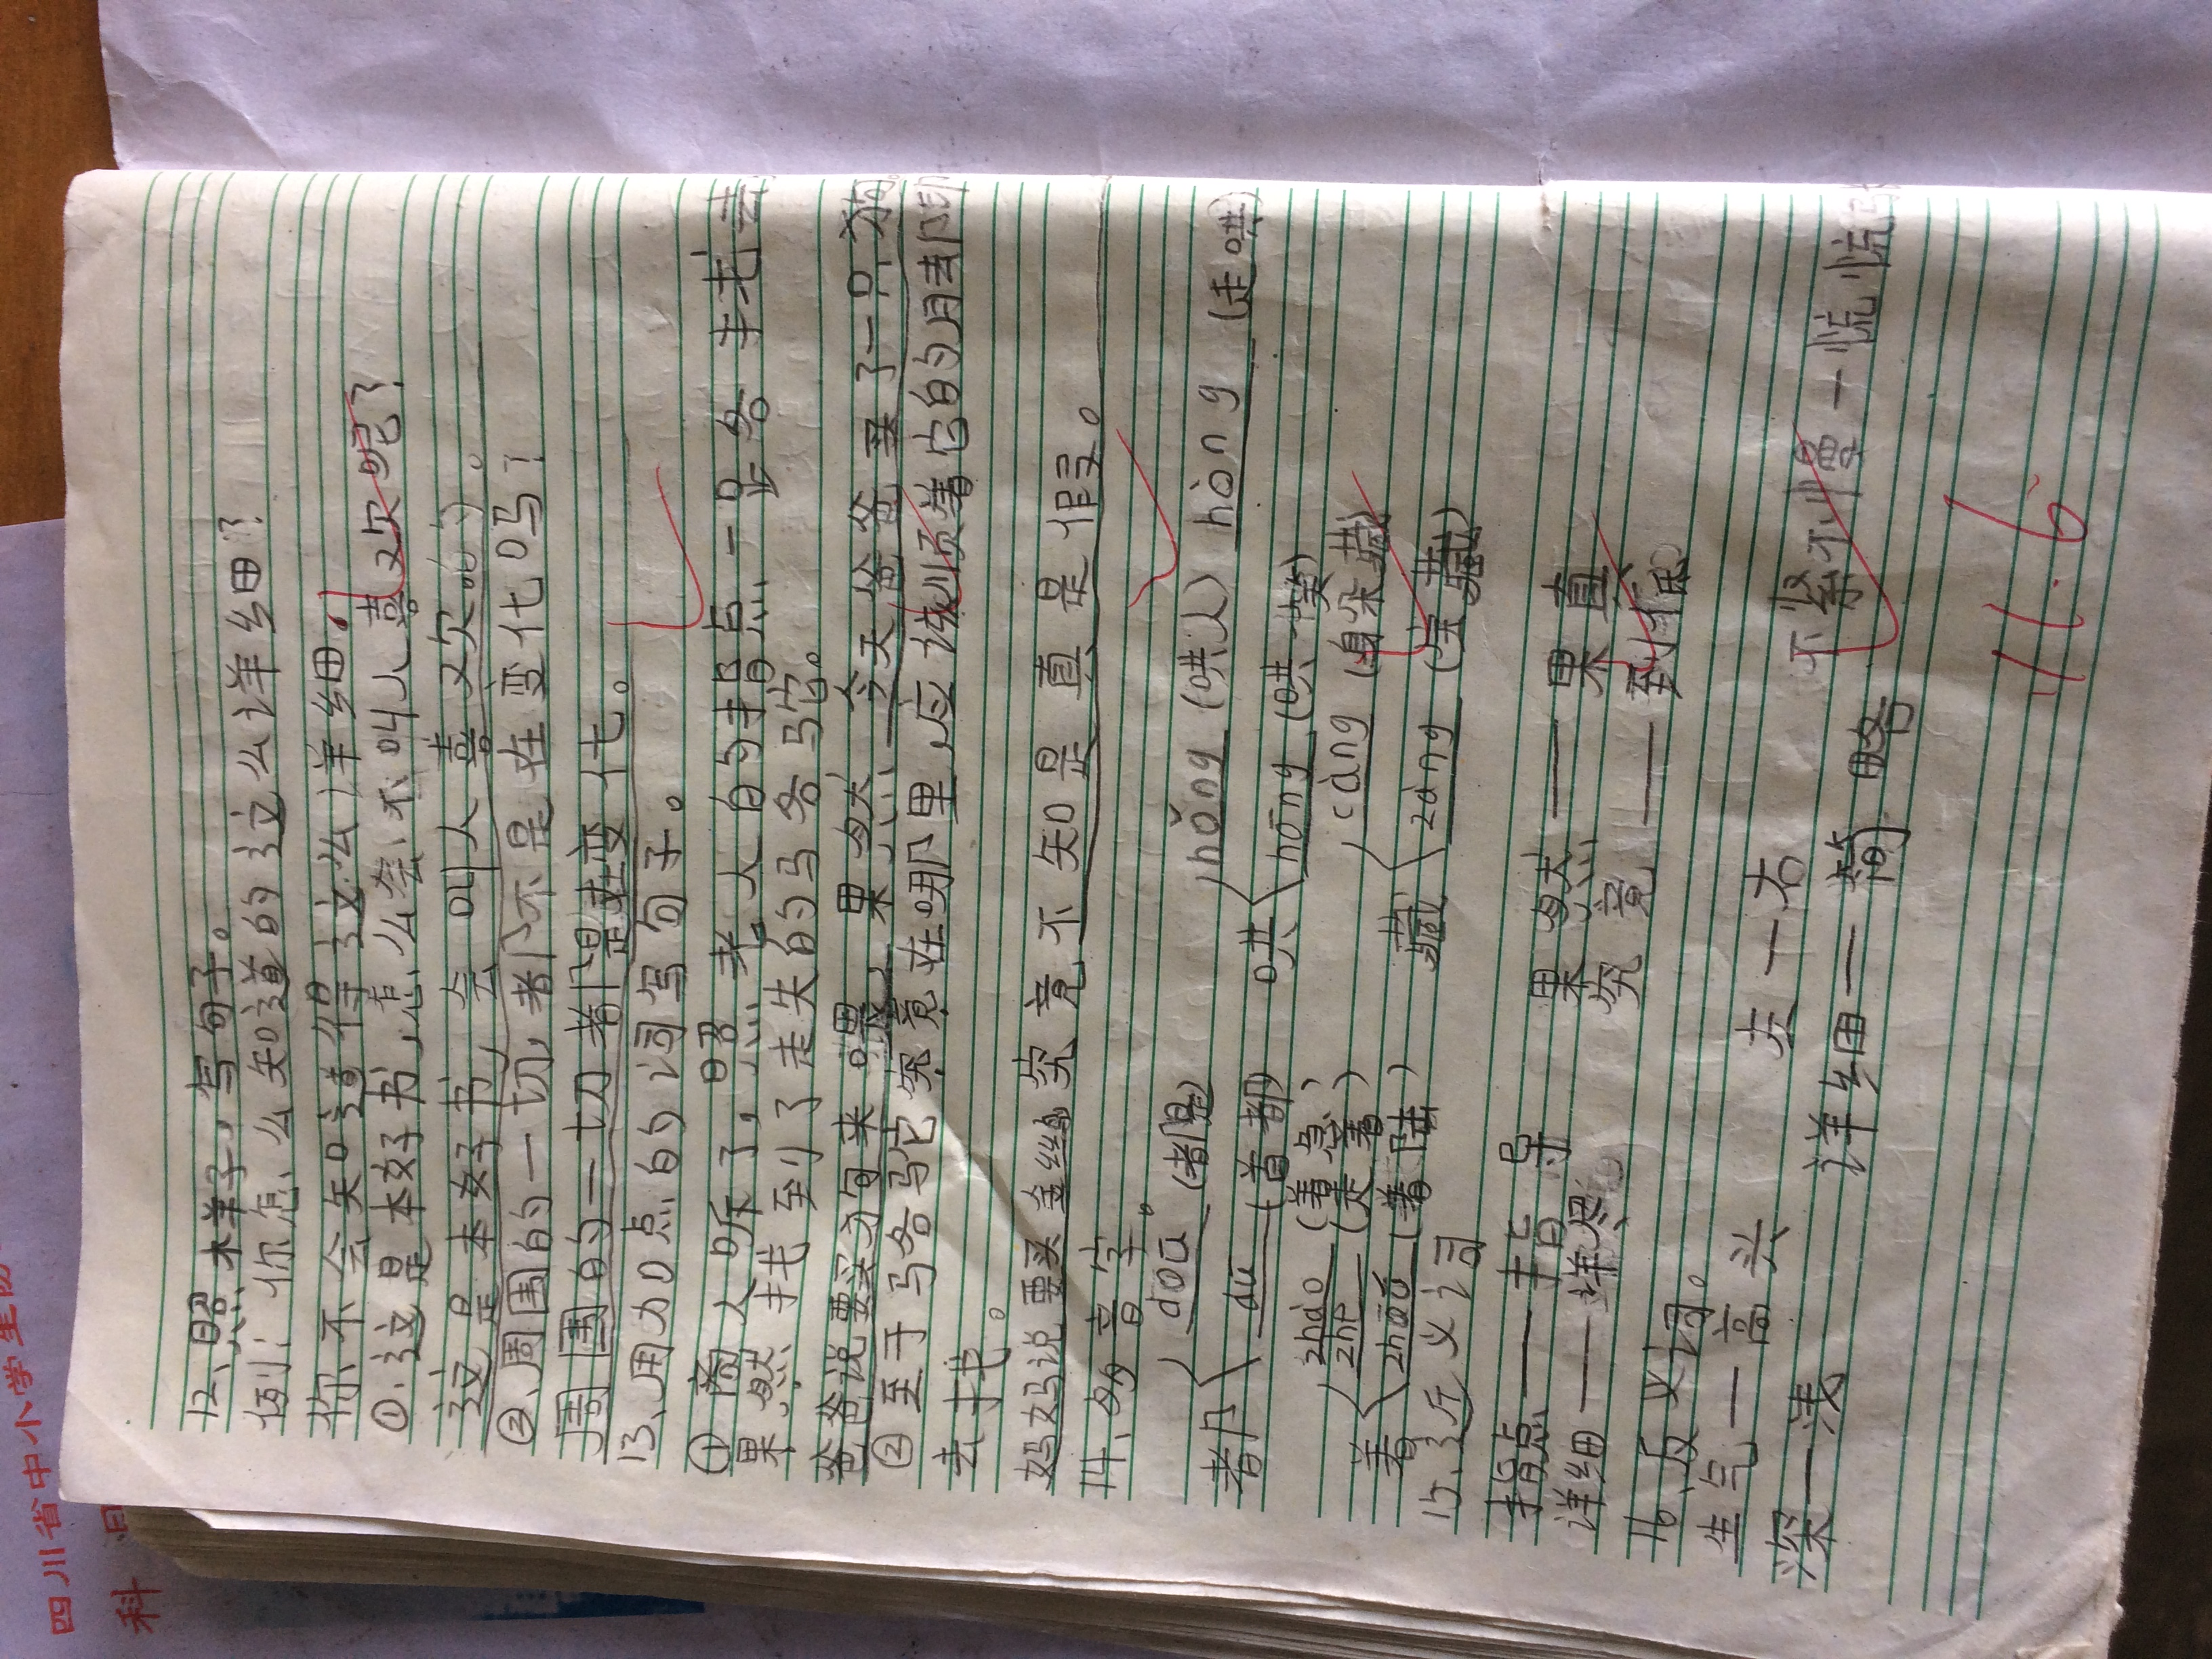 四川省中小学生
科
12、照样子,写句子。
例:你怎么知道的这么详细?
你不会知道得这么详细。
①、这是本好书,怎么会不叫人喜欢呢?
这是本好书,会叫人喜欢的。
②、周围的一切,都不是在变化吗?
周围的一切都是在变化。
13、用加点的词写句子。
①商人听了,照老人的指点一路找去,
果然找到了走失的骆驼。
爸爸说要买
果然今天爸爸买了一只狗
②至于骆驼究竟在哪里,应该顺着它的脚印
去找。
妈妈说要买金丝
究竟不知是真是假。
14、多音字。
都 dōu (都是) dū (首都)
哄 hǒng (哄人) hòng (起哄) hōng (哄堂大笑)
着
藏 cáng (躲藏) zàng (宝藏)
15、近义词
指点——指导 果然——果真
详细—— 究竟——到底
16、反义词。
生气—高兴 左—右 不紧不慢—慌
深—浅 详细—简略
11.6